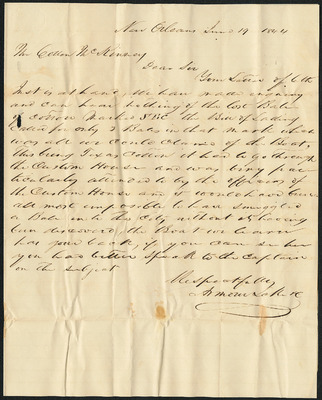 New Orleans June 19 1844
Mr Collin McKinney
Dear Sir
Your Letter of 6th
Inst is at hand, We have made enquiry
and can hear nothing of the lost Bale
of Cotton Marked the Bill of Lading
Calls for only 3 Bales in that Mark which
was all we could Claim of the Boat,
this being Texas Cotton it had to go through
the Custom House and was
attended by the Officers of
the Custom House and it would have been
all most impossible to have smuggled
a Bale into the City without its having
been discovered, the Boat we learn
has gone back, if you can see her
you had better speak to the Captain
on the subject
Respectfully